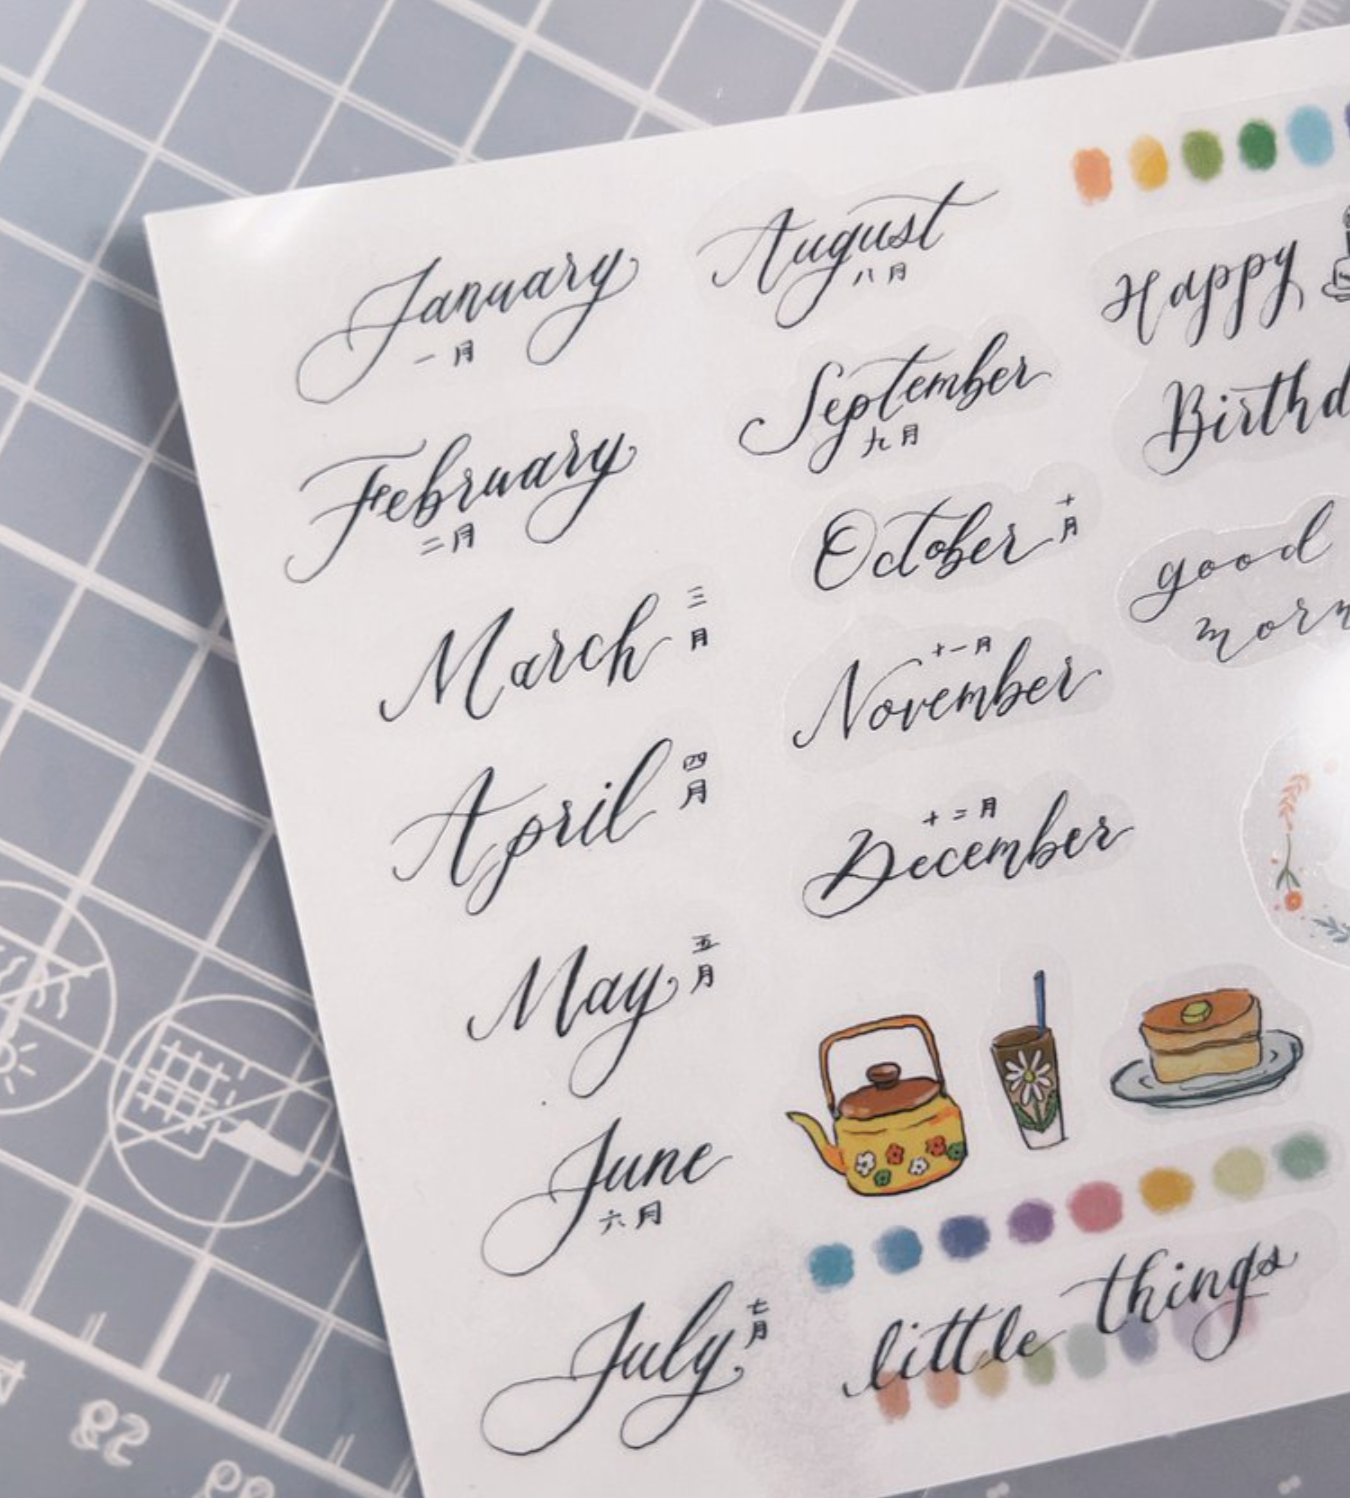 January
一月
February
二月
March
三月
April
四月
May
五月
June
六月
July
七月
August
八月
September
九月
October
十月
十一月
November
十二月
December
Happy
Birthd
good
morn
little things